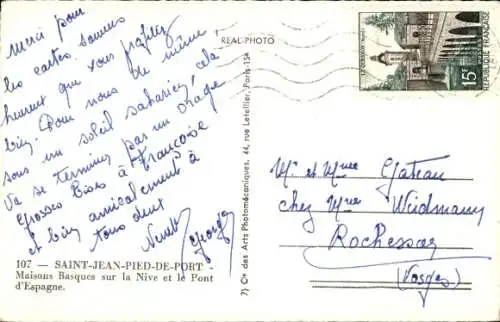 Merci pour
les cartes. Sommes
heureux que vous profitiez
bien. Pour nous de même,
sous un soleil saharien! cela
va se terminer par un orage
grosses bises à Françoise
et bien amicalement à
tous deux
Georges
107 - SAINT-JEAN-PIED-DE-PORT -
Maisons Basques sur la Nive et le Pont
d'Espagne.
REAL-PHOTO
Cie des Arts Photomécaniques, 44, rue Letellier, Paris-15e
15F
REPUBLIQUE FRANÇAISE
Mr et Mme Gateau
chez Mme Weidmann
Rochesson
(Vosges)